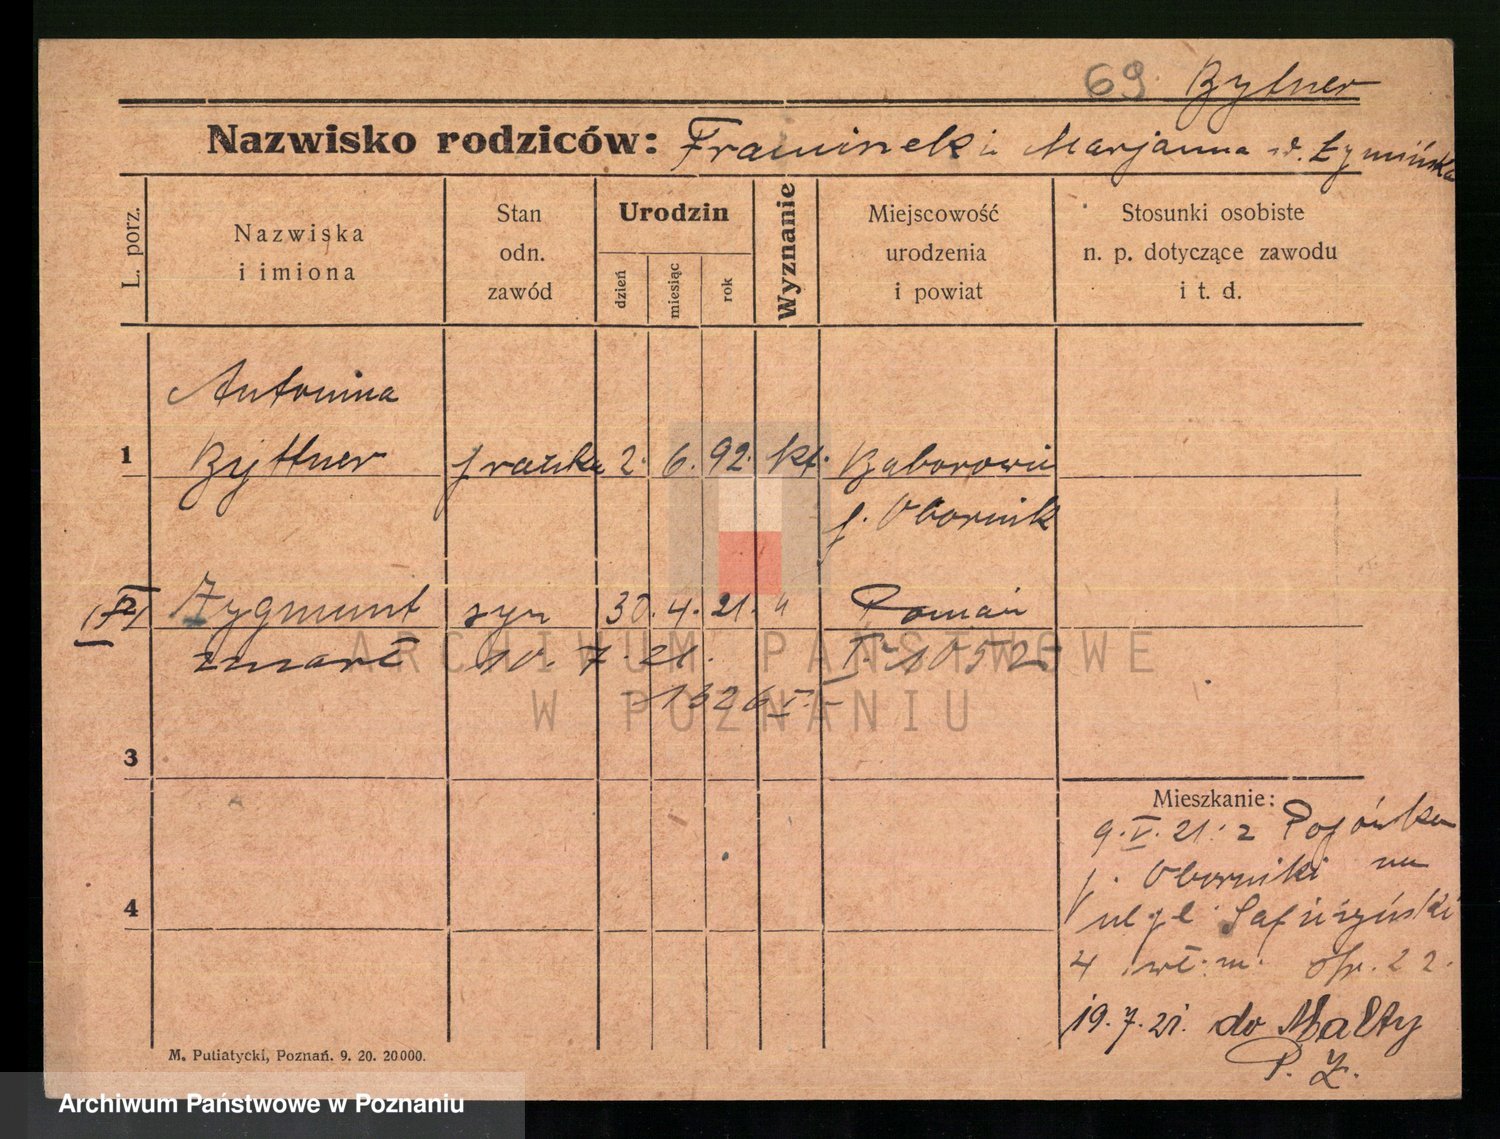 69 Bytner
Nazwisko rodziców: Franciszek i Marjanna d. Łymińska
L. porz.
Nazwiska
i imiona
Stan
odn.
zawód
Urodzin
dzień
miesiąc
rok
Wyznanie
Miejscowość
urodzenia
i powiat
Stosunki osobiste
n. p. dotyczące zawodu
i t. d.
Antonina
1 Byttner 2. 6. 92. kt. Bąborowie
p. Obornik
2 Zygmunt syn 30. 4. 21. " Poznań
zmarł 10. 7 21. 1052
1326
3
Mieszkanie:
9. V. 21. z
4
p. Oborniki na
4 22.
19. 7. 21. do Malty
P. Z.
M. Putiatycki, Poznań. 9. 20. 20000.
ARCHIWUM PAŃSTWOWE
W POZNANIU
Archiwum Państwowe w Poznaniu